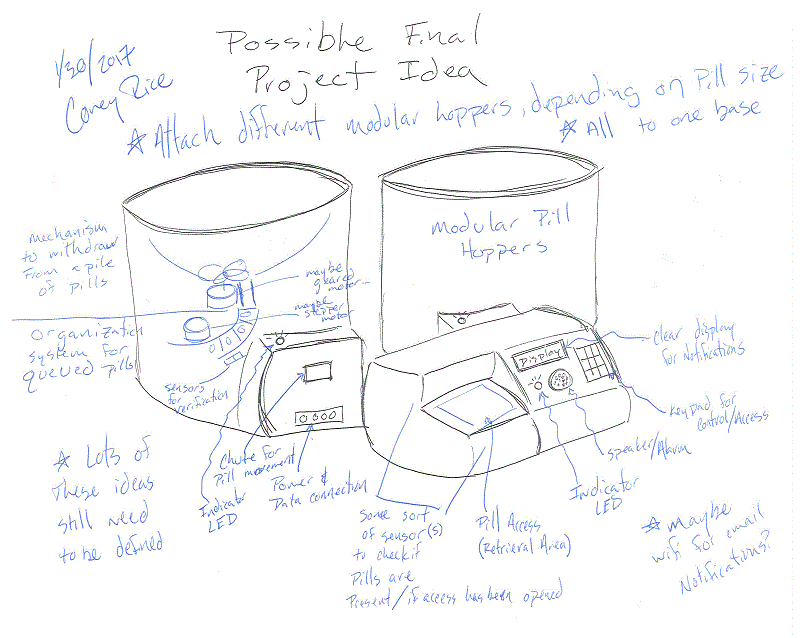 Possible Final
Project Idea
1/30/2017
Corey Rice
* Attach different modular hoppers, depending on Pill size
* All to one base
mechanism
to withdraw
from a pile
of pills
maybe
geared
motor
maybe
stepper
motor
organization
system for
queued pills
sensors
for
verification
Modular Pill
Hoppers
Display
clear display
for Notifications
Keypad for
Control/Access
Speaker/Alarm
Indicator
LED
Chute for
Pill movement
Indicator
LED
Power &
Data connection
Some sort
of sensor(s)
to check if
Pills are
Present/if access has been opened
Pill Access
(Retrieval Area)
* Lots of
These ideas
still need
to be defined
* maybe
wifi for email
Notifications?